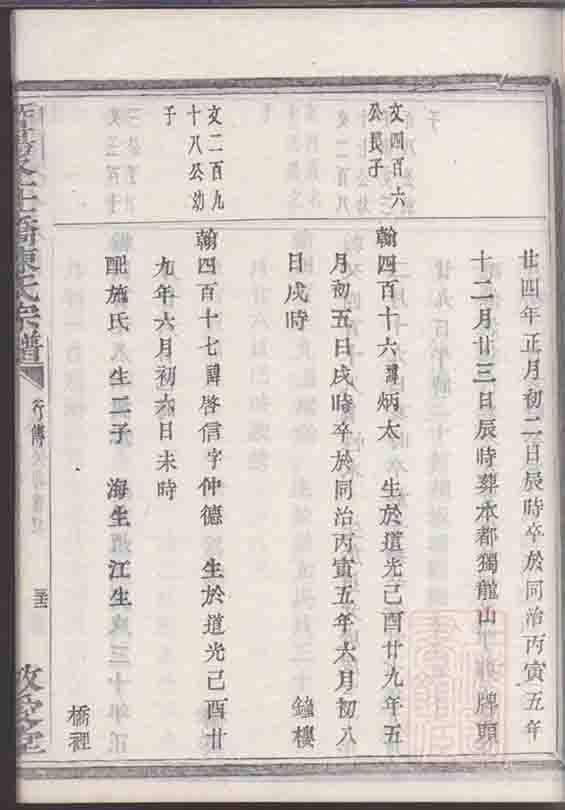 廿四年正月初二日辰時卒於同治丙寅五年
十二月廿三日辰時葬本都獨龍山 牌頭
文四百六
公長子
翰四百十六諱炳太 生於道光己酉廿九年五
月初五日戌時卒於同治丙寅五年六月初八
日戌時 鐘樓
文二百九
十八公幼
子
翰四百十七諱啓信字仲德 生於道光己酉廿
九年六月初六日未時
配施氏 生二子 海生 江生
橋裡
陳氏宗譜
行傳